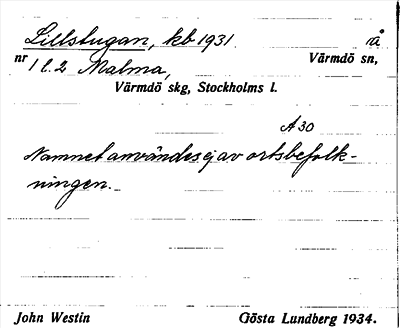 Lillstugan, kb 1931. rå
nr 1 l. 2 Malma, Värmdö sn,
Värmdö skg, Stockholms l.
A 30
Namnet användes ej av ortsbefolk-
ningen.
John Westin Gösta Lundberg 1934.